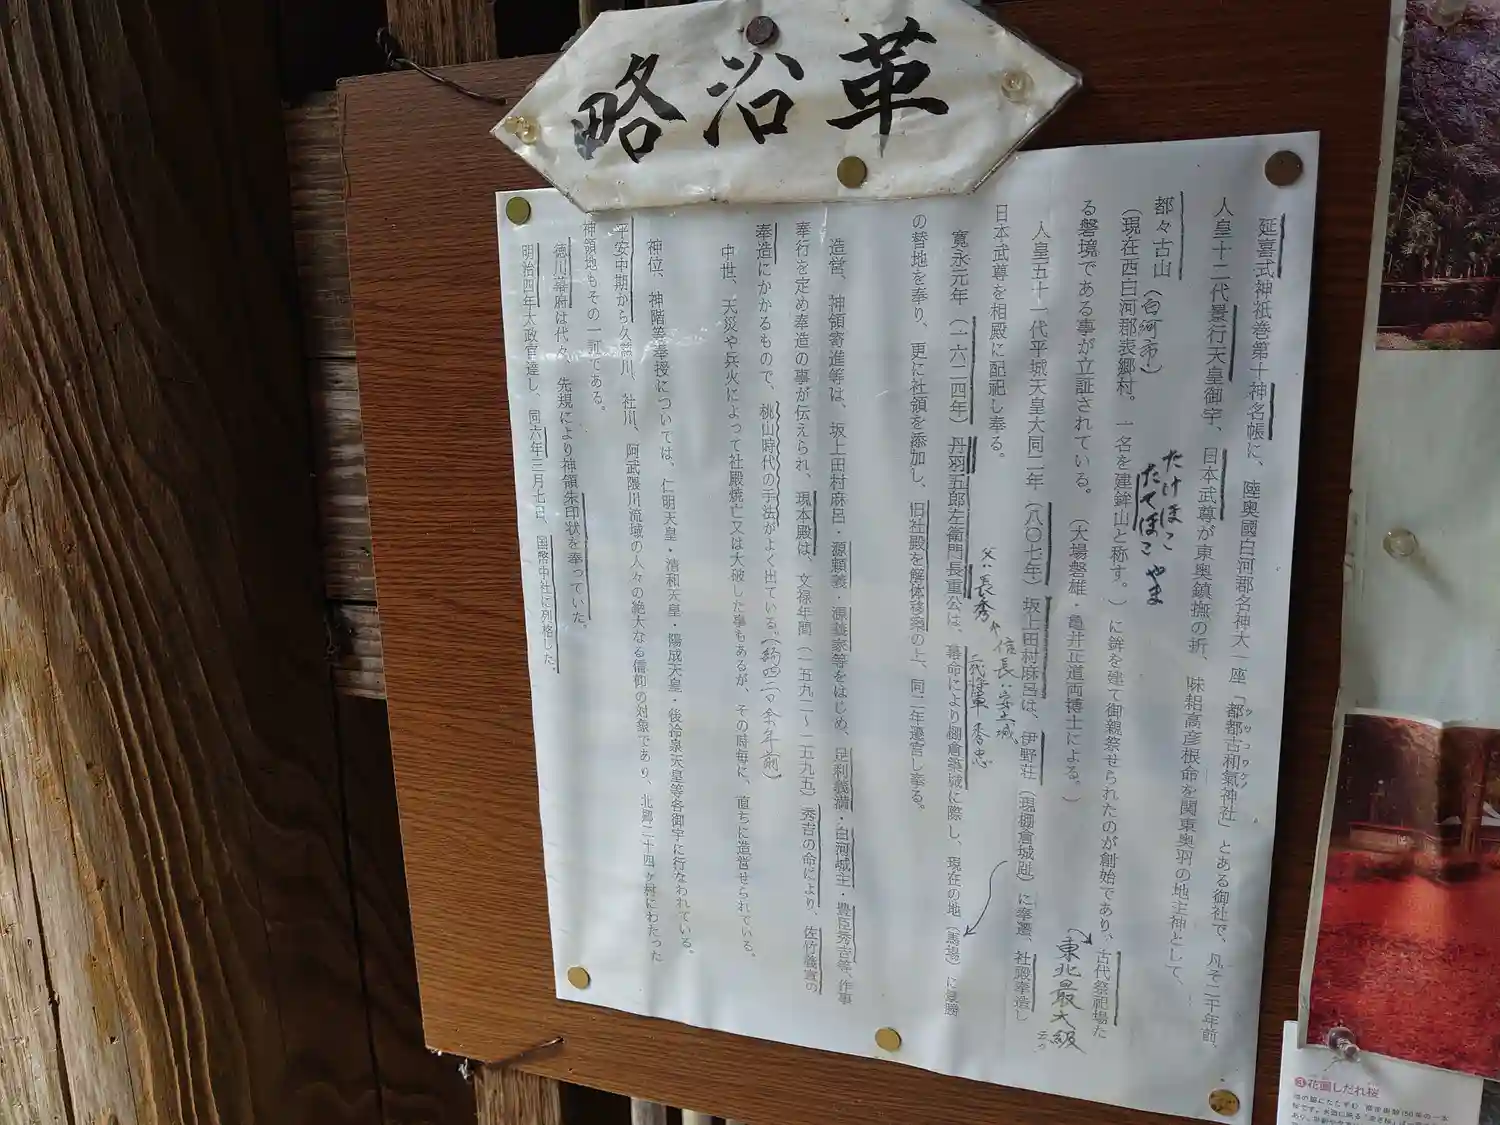 略沿革
延喜式神祇巻第十神名帳に、陸奥國白河郡名神大一座「都都古和氣神社」とある御社で、凡そ二千年前、
ツツコワケノ
人皇十二代景行天皇御宇、日本武尊が東奥鎮撫の折、味耜高彦根命を関東奥羽の地主神として、
都々古山(白河市)
たけほこ
たてほこ やま
(現在西白河郡表郷村。一名を建鉾山と称す。)に鉾を建て御親祭せられたのが創始であり、古代祭祀場た
(東北最大級
る磐境である事が立証されている。(大場磐雄・亀井正道両博士による。)
人皇五十一代平城天皇大同二年(八〇七年)坂上田村麻呂は、伊野荘(現棚倉城趾)に奉遷、社殿奉造し
日本武尊を相殿に配祀し奉る。
信長ハ安土城
父ハ長秀
二代将軍 秀忠
寛永元年(一六二四年)丹羽五郎左衛門長重公は、幕命により棚倉築城に際し、現在の地(馬場)に景勝
の替地を奉り、更に社領を添加し、旧社殿を解体移築の上、同二年遷宮し奉る。
造営、神領寄進等は、坂上田村麻呂・源頼義・源義家等をはじめ、足利義満・白河城主・豊臣秀吉等、作事
奉行を定め奉造の事が伝えられ、現本殿は、文禄年間(一五九二〜一五九五)秀吉の命により、佐竹義宣の
奉造にかかるもので、桃山時代の手法がよく出ている。(約四二〇余年前)
中世、天災や兵火によって社殿焼亡又は大破した事もあるが、その時毎に、直ちに造営せられている。
神位、神階等奉授については、仁明天皇・清和天皇・陽成天皇・後冷泉天皇等各御宇に行なわれている。
平安中期から久慈川、社川、阿武隈川流域の人々の絶大なる信仰の対象であり、北郷二十四ヶ村にわたった
神領地もその一証である。
徳川幕府は代々、先規により神領朱印状を奉っていた。
明治四年大政官達し、同六年三月七日、国幣中社に列格した。
花園しだれ桜